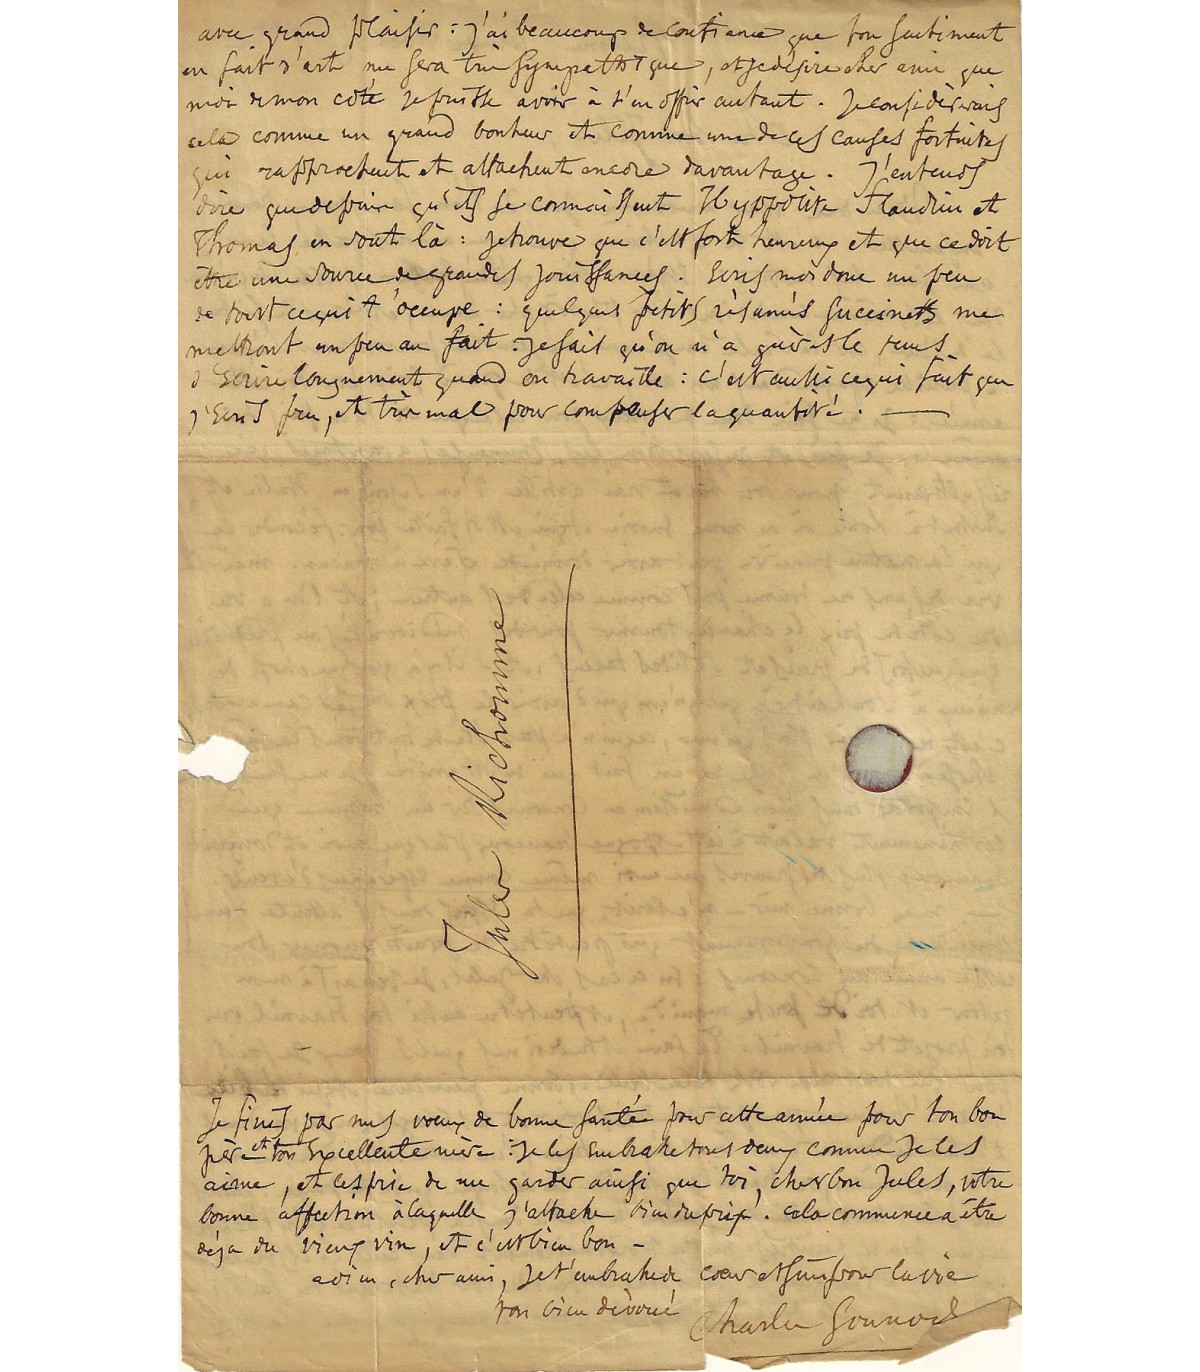 avec grand plaisir : j'ai beaucoup de confiance que ton sentiment
en fait d'art me sera très sympathique, et je désire cher ami que
moi de mon côté je puisse avoir à t'en offrir autant. Je considèrerais
cela comme un grand bonheur et comme une de ces causes fortuites
qui rapprochent et attachent encore davantage. J'entends
dire que depuis qu'ils se connaissent Hyppolite Flandrin et
Thomas en sont là : je trouve que c'est fort heureux et que ce doit
être une source de grandes jouissances. Ecris moi donc un peu
de tout ce qui t'occupe : quelques petits résumés succincts me
mettront un peu au fait : je sais qu'on n'a guères le tems
d'écrire longuement quand on travaille : c'est aussi ce qui fait que
j'écris peu, et très mal pour compenser la quantité. —
Jules Richomme
Je finis par mes voeux de bonne santé pour cette année pour ton bon
père et ton excellente mère : je les embrasse tous deux comme je les
aime, et les prie de me garder ainsi que toi, cher bon Jules, votre
bonne affection à laquelle j'attache bien du prix. cela commence à être
déjà du vieux vin, et c'est bien bon –
adieu, cher ami, je t'embrasse de coeur et suis pour la vie
ton bien dévoué
Charles Gounod